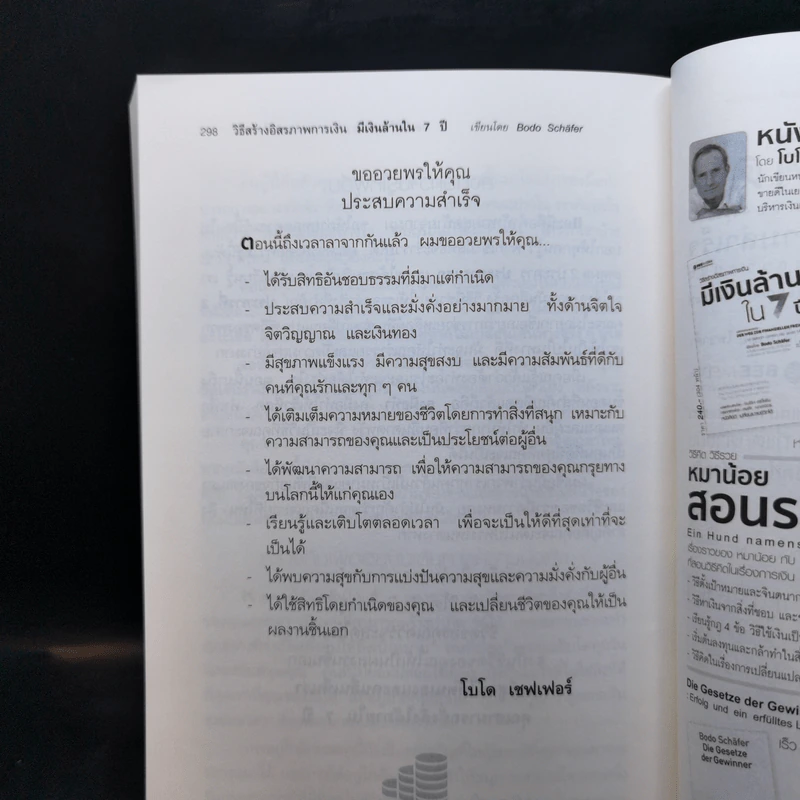 298 วิธีสร้างอิสรภาพการเงิน มีเงินล้านใน 7 ปี เขียนโดย Bodo Schäfer
ขออวยพรให้คุณ
ประสบความสำเร็จ
ตอนนี้ถึงเวลาลาจากกันแล้ว ผมขออวยพรให้คุณ...
- ได้รับสิทธิอันชอบธรรมที่มีมาแต่กำเนิด
- ประสบความสำเร็จและมั่งคั่งอย่างมากมาย ทั้งด้านจิตใจ
จิตวิญญาณ และเงินทอง
- มีสุขภาพแข็งแรง มีความสุขสงบ และมีความสัมพันธ์ที่ดีกับ
คนที่คุณรักและทุก ๆ คน
- ได้เติมเต็มความหมายของชีวิตโดยการทำสิ่งที่สนุก เหมาะกับ
ความสามารถของคุณและเป็นประโยชน์ต่อผู้อื่น
- ได้พัฒนาความสามารถ เพื่อให้ความสามารถของคุณกรุยทาง
บนโลกนี้ให้แก่คุณเอง
- เรียนรู้และเติบโตตลอดเวลา เพื่อจะเป็นให้ดีที่สุดเท่าที่จะ
เป็นได้
- ได้พบความสุขกับการแบ่งปันความสุขและความมั่งคั่งกับผู้อื่น
- ได้ใช้สิทธิโดยกำเนิดของคุณ และเปลี่ยนชีวิตของคุณให้เป็น
ผลงานชิ้นเอก
โบโด เชฟเฟอร์
หนัง
โดย โบโ
นักเขียนห
ขายดีในเย
บริหารเงิน
มีเงินล้าน
ใน 7 ปี
Bodo Schäfer
240.-
วิธีคิด วิธีรวย
หมาน้อย
สอนร
Ein Hund namens
เรื่องราวของ หมาน้อย ทัม
ที่สอนวิธีคิดในเรื่องการเงิน
- วิธีตั้งเป้าหมายและจินตนาก
- วิธีหาเงินจากสิ่งที่ชอบ และ
- เรียนรู้กฎ 4 ข้อ วิธีใช้เงินเป็
- เริ่มต้นลงทุนและกล้าทำในสิ่
- วิธีคิดในเรื่องการเปลี่ยนแปล
Die Gesetze der Gewin
: Erfolg und ein erfülltes L
Bodo Schäfer
Die Gesetze
der Gewinner
เร็ว